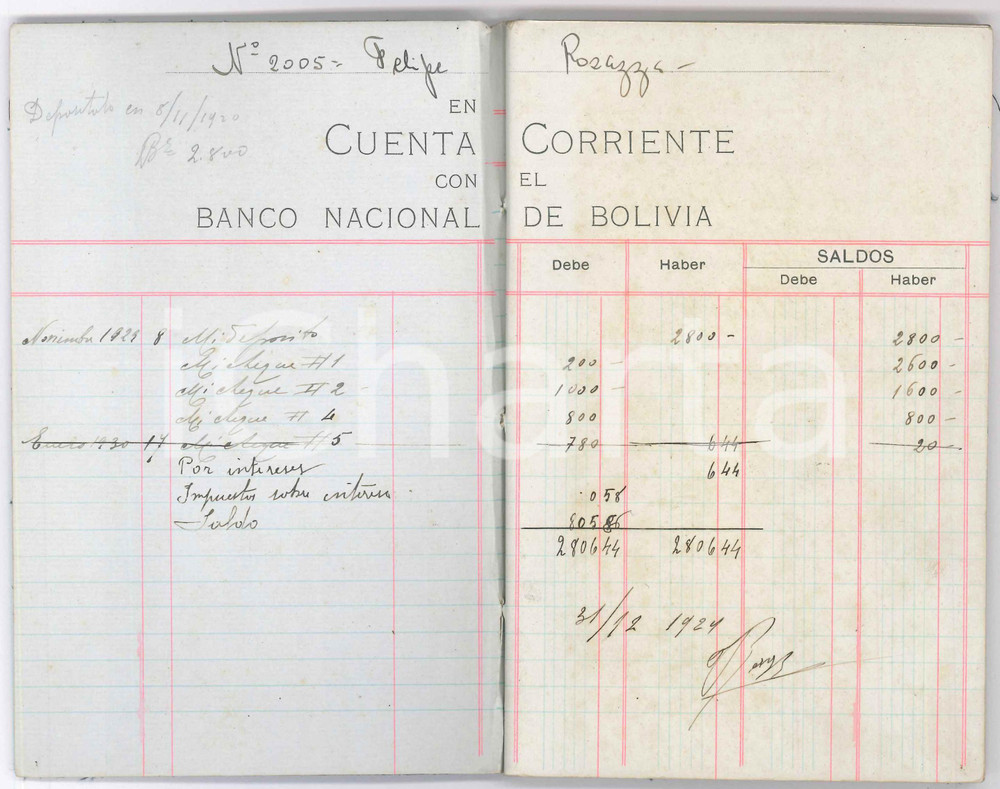 Nº 2005= Felipe Rosazza -
Depositado en 8/11/1920
Bs 2.800
EN
CUENTA CORRIENTE
CON EL
BANCO NACIONAL DE BOLIVIA
Debe Haber SALDOS
Debe Haber
Noviembre 1929 8 Mi Deposito 2800 - 2800 -
Mi cheque # 1 200 - 2600 -
Mi cheque # 2 - 1000 - 1600 -
Mi cheque # 4 800 800 -
Enero 1930 17 Mi cheque # 5 780 6 44 20 -
Por intereses 6 44
Impuestos sobre interes . 0 58
Saldo 805 86
2806 44 2806 44
31/12 1929